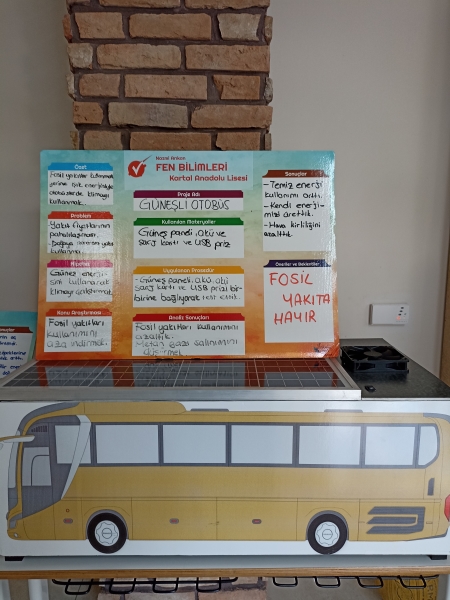 Nazmi Arıkan
FEN BİLİMLERİ
Kartal Anadolu Lisesi
Özet
Fosil yakıtlar kullanmak
yerine ışık enerjisiyle
otobüslerde klimayı
kullanmak.
Problem
Yakıt fiyatlarının
pahalılaşması.
Hipotez
Güneş enerji-
sini kullanarak
klimayı çalıştırmak.
Konu Araştırması
Fosil yakıtları
kullanımını
aza indirmek.
Proje Adı
GÜNEŞLİ OTOBÜS
Kullanılan Materyaller
Güneş paneli, akü ve
şarj kartı ve USB priz
Uygulanan Prosedür
- Güneş paneli, akü,
şarj kartı ve USB prizi bir-
birine bağlayarak test ettik.
Analiz Sonuçları
Fosil yakıtları kullanımını
azaltmak.
Metan gazı salınımını
düşürmek.
Sonuçlar
- Temiz enerji
kullanımı arttı.
- Kendi enerji-
mizi ürettik.
- Hava kirliliğini
azalttık.
Öneriler ve Beklentiler
FOSİL
YAKITA
HAYIR